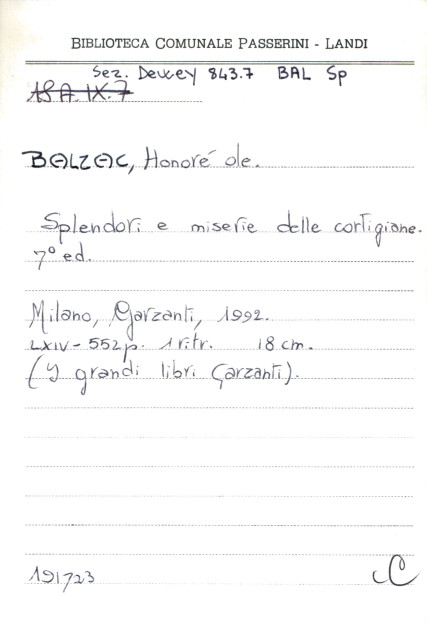 BIBLIOTECA COMUNALE PASSERINI - LANDI
Sez. Dewey 843.7 BAL Sp
A8 A. IX. 7
BALZAC, Honoré de.
Splendori e miserie delle cortigiane.
7° ed.
Milano, Garzanti, 1992.
LXIV - 552 p. 1 ritr. 18 cm.
(I grandi libri Garzanti).
191723
C